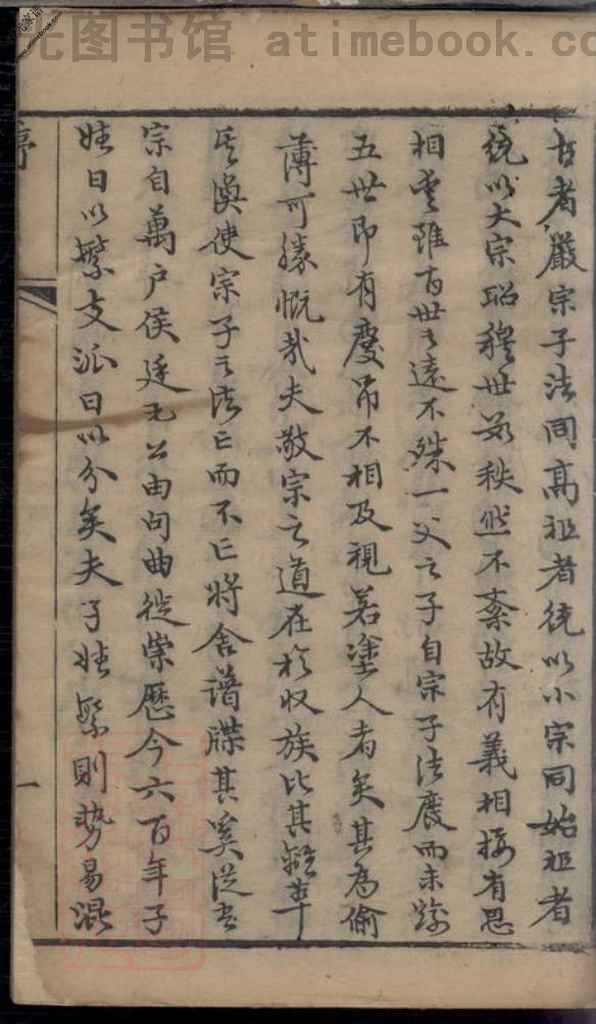 元图书馆 atimebook.co
古者嚴宗子法同高祖者統以小宗同始祖者
統以大宗昭穆世次秩然不紊故有義相接有恩
相愛雖百世之遠不殊一父之子自宗子法廢而未踰
五世即有慶弔不相及視若塗人者矣其為偷
薄可勝慨哉夫敬宗之道在於收族比其離萃
其渙使宗子之法亡而不亡將舍譜牒其奚從吾
宗自萬戶侯廷元公由句曲徙崇歷今六百年子
姓日以繁支派日以分矣夫子姓繁則勢易混
序
一